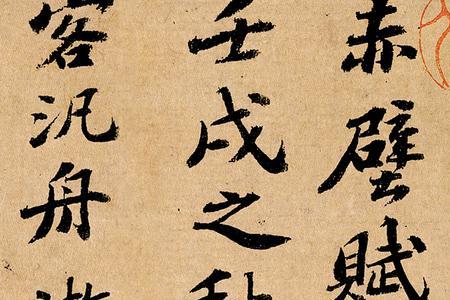 赤壁賦
壬戌之秋
客汎舟遊